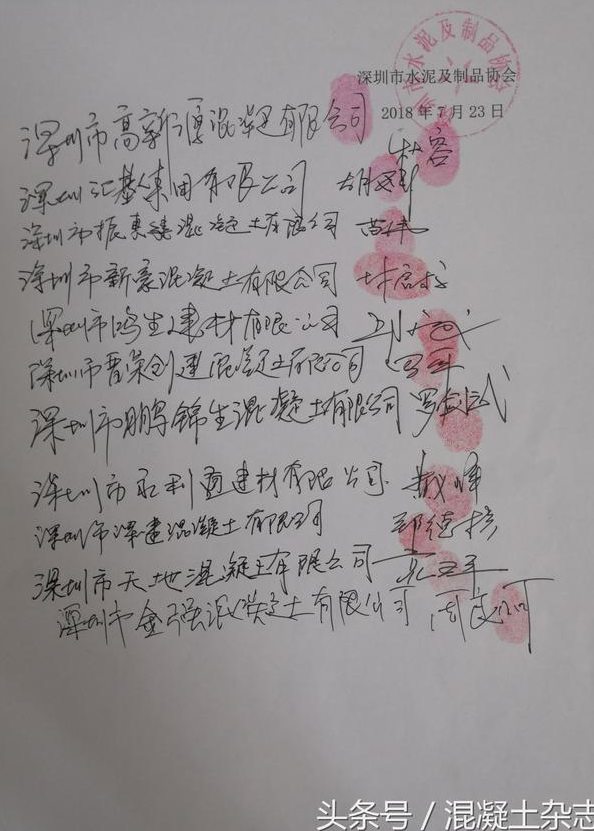 水泥及制品协会
深圳市水泥及制品协会
2018年7月23日
深圳市高新源混凝土有限公司
深圳汇基集团有限公司
深圳市振惠建混凝土有限公司
深圳市新豪混凝土有限公司
深圳市鸿生建材有限公司
深圳市晋荣创建混凝土有限公司 罗军
深圳市鹏锦生混凝土有限公司 罗剑武
深圳市永利通建材有限公司
深圳市深建混凝土有限公司 郑德
深圳市天地混凝土有限公司
深圳市金强混凝土有限公司 周良
头条号 / 混凝土杂志